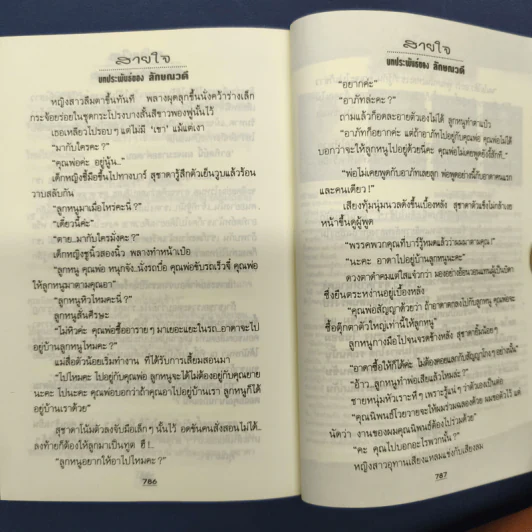 สายใจ
บทประพันธ์ของ ลักษณวดี
หญิงสาวลืมตาขึ้นทันที พลางผุดลุกขึ้นนั่งคว้าร่างเล็ก
กระจ้อยร่อยในชุดกระโปรงบางสั้นสีขาวพองฟูนั้นไว้
เธอเหลียวไปรอบๆ แต่ไม่มี 'เขา' แม้แต่เงา
"มากับใครคะ ?"
"คุณพ่อค่ะ อยู่นู้น..."
เด็กหญิงชี้มือขึ้นไปทางบาร์ สุชาดารู้สึกตัวเย็นวูบแล้วร้อน
วาบสลับกัน
"ลูกหนูมาเมื่อไหร่คะนี่ ?"
"เดี๋ยวนี้ค่ะ"
"ตาย..มากับใครมั่งคะ ?"
เด็กหญิงชูนิ้วสองนิ้ว พลางทำหน้าเป๋อ
"ลูกหนู คุณพ่อ หนุกจัง..นั่งรถบื๋อ คุณพ่อขับรถเร็วจี๋ คุณพ่อ
ให้ลูกหนูมาตามคุณอา"
"ลูกหนูหิวไหมคะนี่ ?"
ลูกหนูสั่นศีรษะ
"ไม่หิวค่ะ คุณพ่อซื้ออาราย ๆ มาเยอะแยะในรถ..อาดาจะไป
อยู่บ้านลูกหนูไหมคะ ?"
แม่สื่อตัวน้อยเริ่มทำงาน ที่ได้รับการเสี้ยมสอนมา
"ไปไหมคะ ไปอยู่กับคุณพ่อ ลูกหนูจะได้ไม่ต้องอยู่กับคุณยาย
นะคะ ไปนะคะ คุณพ่อบอกว่าถ้าคุณอาไปอยู่บ้านเรา ลูกหนูก็ได้
อยู่บ้านเราด้วย"
สุชาดาโน้มตัวลงจับมือเล็กๆ นั้นไว้ อดขันคนสั่งสอนไม่ได้..
ลงท้ายก็ต้องให้ลูกมาเป็นทูต ฮึ !..
"ลูกหนูอยากให้อาไปไหมคะ ?"
786
สายใจ
บทประพันธ์ของ ลักษณวดี
"อยากค่ะ"
"อาภัทล่ะคะ ?"
ถามแล้วก็อดละอายตัวเองไม่ได้ ลูกหนูทำตาแป๋ว
"อาภัทก็อยากค่ะ แต่ถ้าอาภัทไปอยู่กับคุณพ่อ คุณพ่อไม่ได้
บอกว่าจะให้ลูกหนูไปอยู่ด้วยนี่คะ คุณพ่อไม่เคยพูดยังงี้สักที..."
"พ่อไม่เคยพูดกับอาภัทเลยลูก พ่อพูดอย่างนี้กับอาดาคนแรก
และคนเดียว !"
เสียงทุ้มนุ่มนวลดังขึ้นเบื้องหลัง สุชาดาตัวแข็งไม่กล้าเงย
หน้าขึ้นดูผู้พูด
"พรรคพวกคุณที่บาร์รู้หมดแล้วว่าผมมาตามคุณ!"
"นะคะ อาดาไปอยู่บ้านลูกหนูนะคะ"
ซึ่งยืนตระหง่านอยู่เบื้องหลัง
"คุณพ่อสัญญาด้วยว่า ถ้าอาดาตกลงไปกับลูกหนู คุณพ่อจะ
ซื้อตุ๊กตาตัวใหญ่เท่านี้ให้ลูกหนู"
ลูกหนูกางมือไปจนจรดข้างหลัง สุชาดายิ้มน้อยๆ
"อาดาซื้อให้ก็ได้ค่ะ ไม่ต้องตอบแลกกับสัญญาโกงๆ อย่างนั้น"
"อ้าว..ลูกหนูทำพ่อเสียแล้วไหมล่ะ ?"
ชายหนุ่มหัวเราะหึๆ เพราะรู้แน่ๆ ว่าตัวเองเป็นต่อ
"คุณนิพนธ์ไว้วายจะให้ผมร่วมฉลองด้วย ผมขอตัวไว้ แต่
นัดว่า งานของผมคุณนิพนธ์ต้องไปร่วมด้วย"
"คะ คุณไปบอกอะไรพวกนั้น ?"
หญิงสาวอุทานเสียงแหลมแข่งกับเสียงลม
787